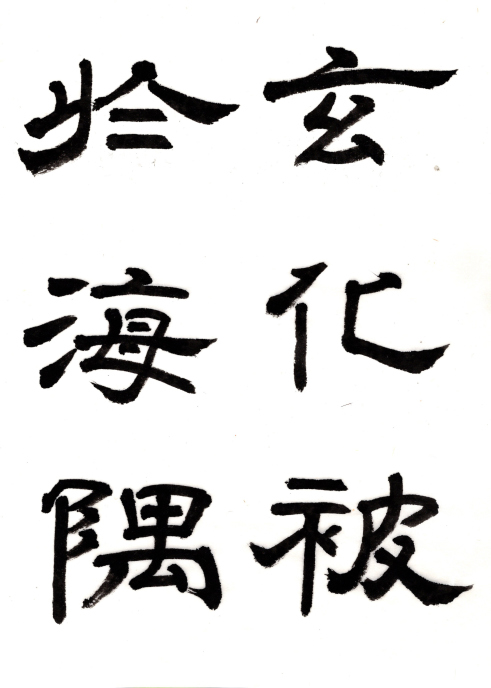 玄化被
於海隅